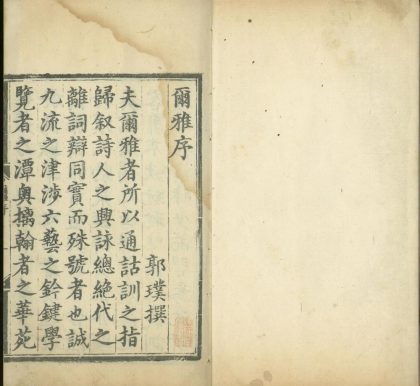 爾雅序
郭璞撰
夫爾雅者所以通詁訓之指
歸叙詩人之興詠總絶代之
離詞辯同實而殊號者也誠
九流之津涉六藝之鈐鍵學
覽者之潭奥摛翰者之華苑